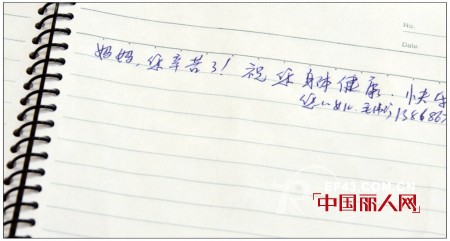 No.
Date
妈妈，您辛苦了！祝您身体健康．快乐
您
13868
中国丽人网